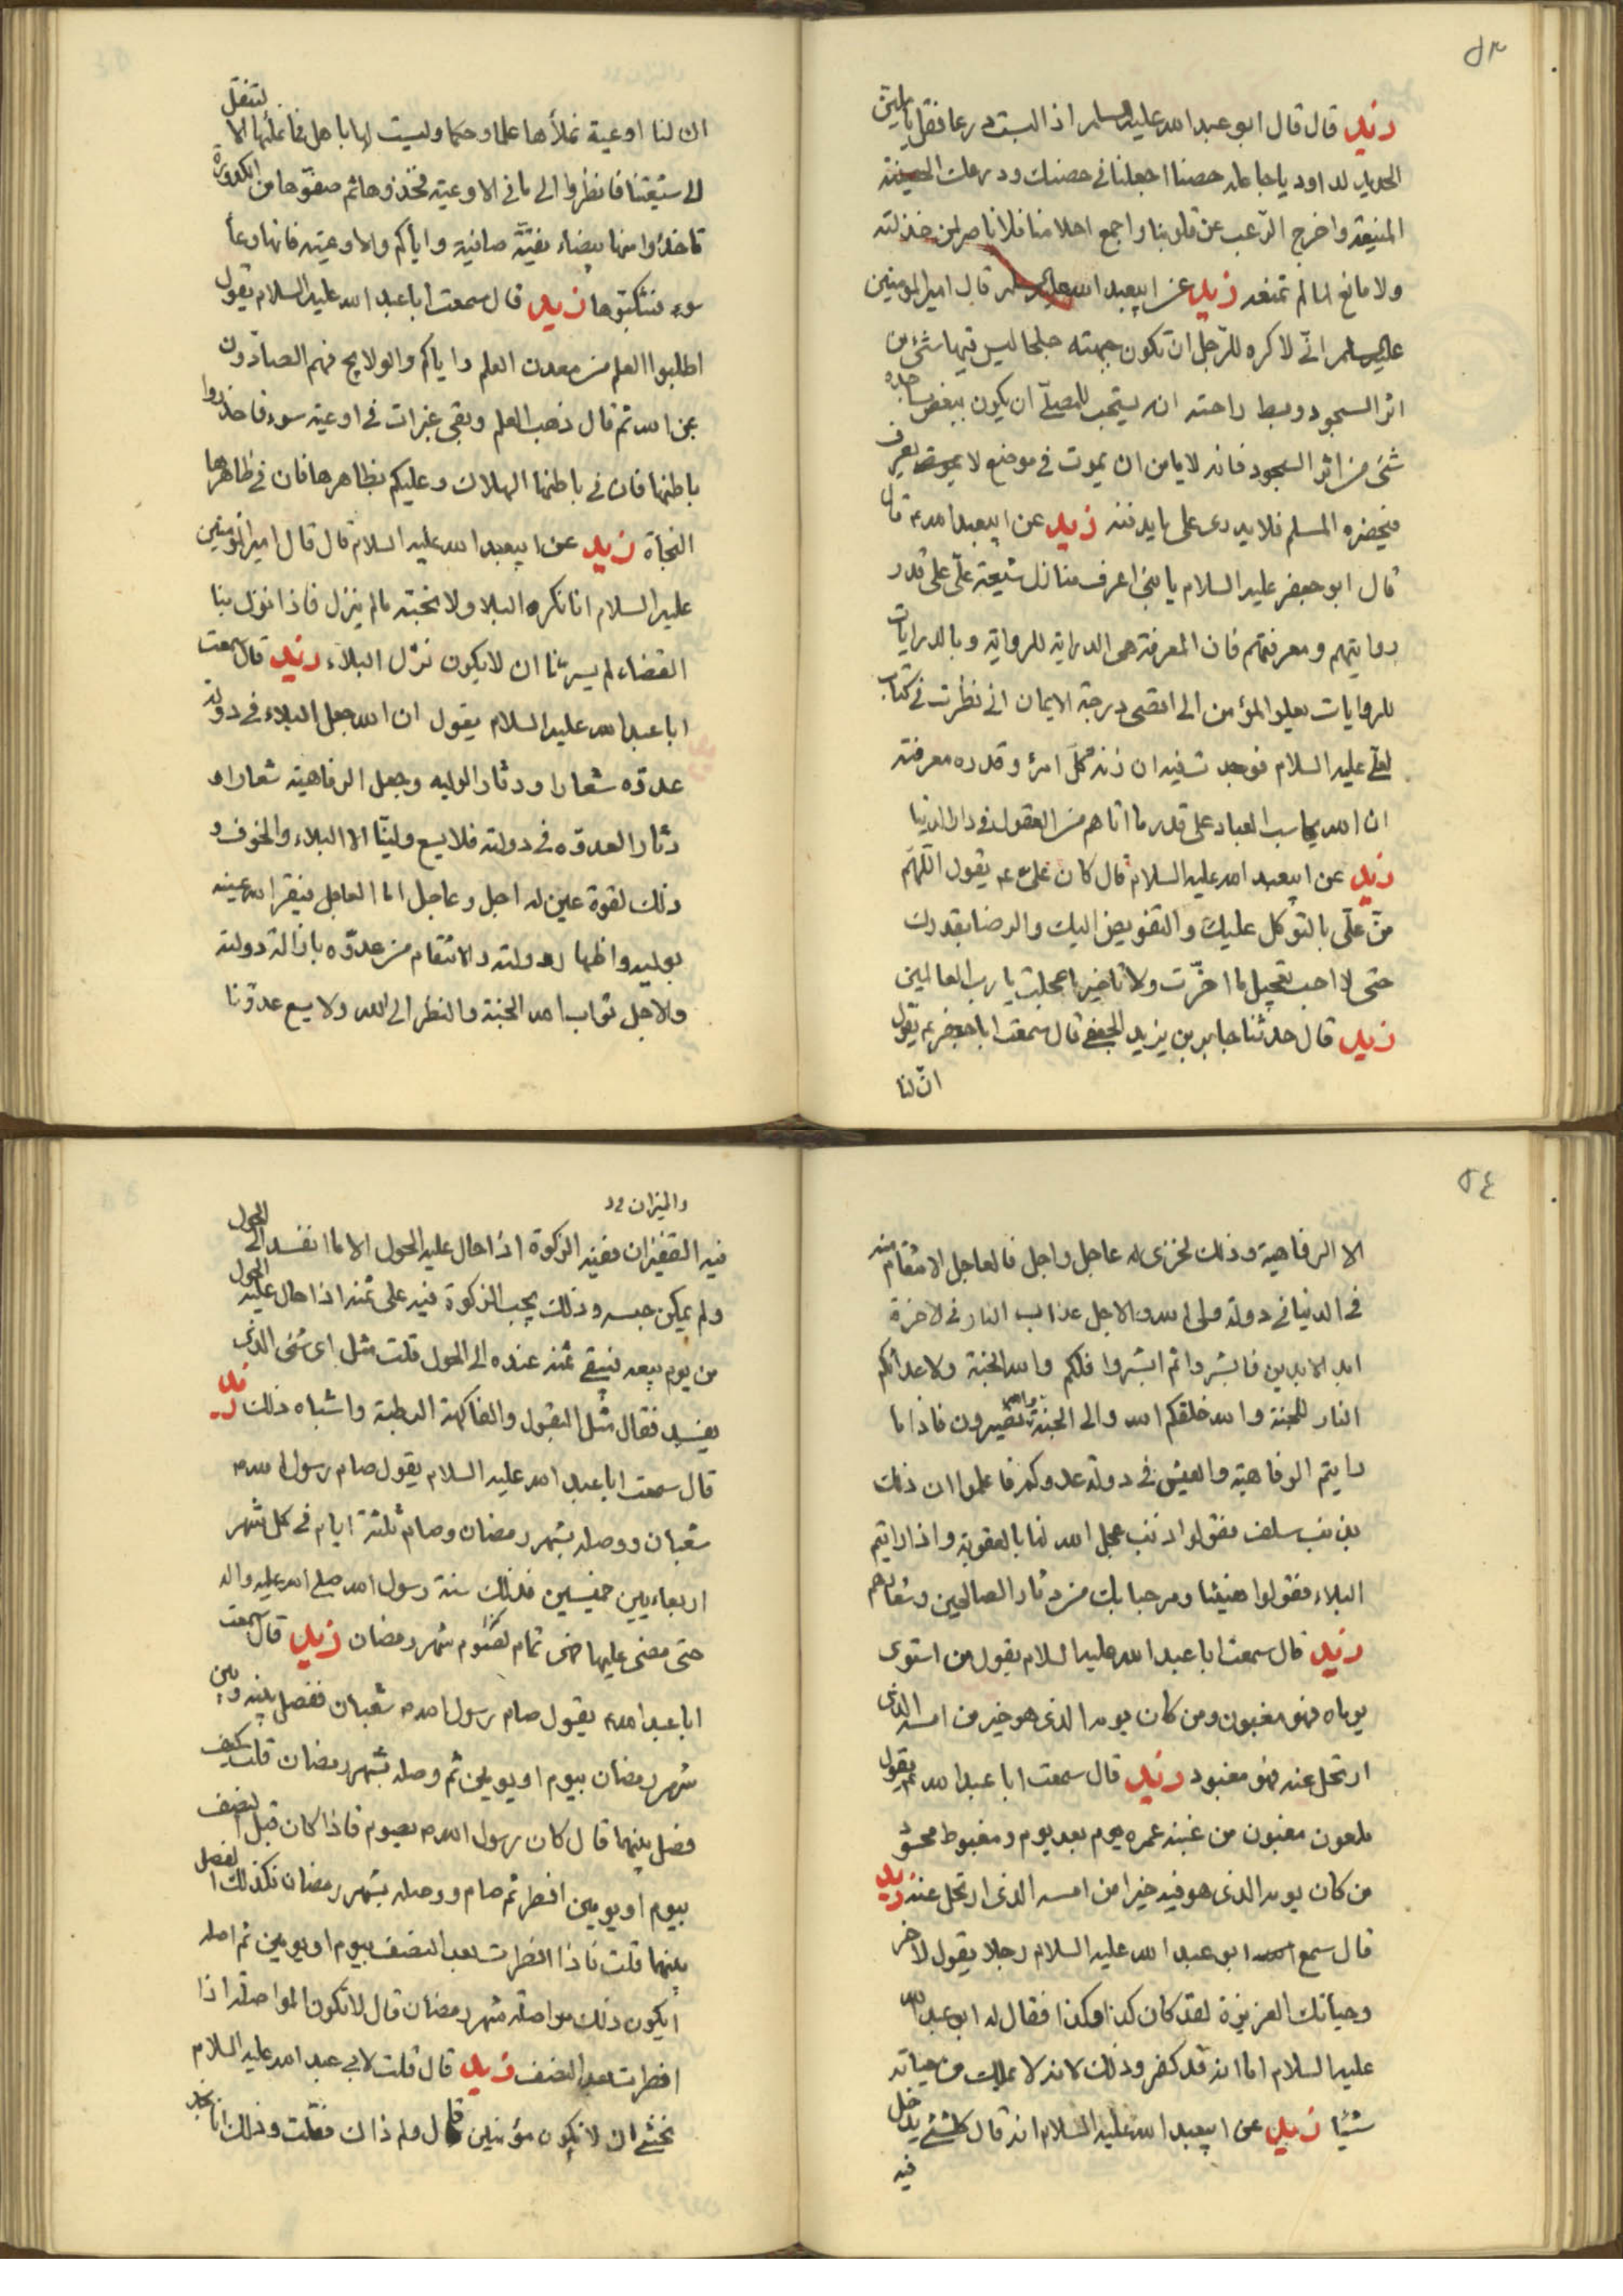 ٥٣
زيد قال قال ابو عبد الله عليه السلم اذا لبست درعا فقل يا ملين
الحديد لداود يا جاعله حصنا اجعلنا في حصنك ودرعك الحصينة
المنيعه واخرج الرّعب عن قلوبنا واجمع احلامنا فلا ناصر لمن خذلته
ولا مانع لما لم تمنعه زيد عن ابيعبد الله عليه السلم قال امير المومنين
عليه السلم انّي لاكره للرّجل ان تكون جبهته جلحا ليس فيها شئ من
اثر السجود وبسط راحته انه يستحب للمصلّي ان يكون ببعض مساجده
شئ من اثر السجود فانه لا يامن ان يموت في موضع لا يعرف
فيحضره المسلم فلا يدرى على ما يدفنه زيد عن ابيعبد الله ع قال
قال ابو جعفر عليه السلام يا بني اعرف منازل شيعة علّي على قدر
روايتهم ومعرفتهم فان المعرفة هى الدراية للرواية وبالدرايات
للروايات يعلو المؤمن الى اقصى درجة الايمان اني نظرت في كتاب
لعلي عليه السلام فوجدت فيه ان زنة كلّ امرئ وقدره معرفته
ان الله يحاسب العباد على قدر ما اتاهم من العقول في دار الدنيا
زيد عن ابيعبد الله عليه السلام قال كان علي ع يقول اللّهمّ
منّ علّي بالتوكل عليك والتفويض اليك والرضا بقدرك
حتى لا احب تعجيل ما اخّرت ولا تاخير ما عجلت يا رب العالمين
زيد قال حدثنا جابر بن يزيد الجعفي قال سمعت ابا جعفر ع يقول
انّ لنا
ان لنا اوعية نملأها علما وحكما وليست لها باهل فما نملأها الا لتنقل
الى شيعتنا فانظروا الى ما في الاوعية فخذوها ثم صفّوها من الكدورة
تاخذوا منها بيضاء نقيّة صافية واياكم والاوعية فانها وعأ
سوء فتنكبّوها زيد قال سمعت ابا عبد الله عليه السلام يقول
اطلبوا العلم من معدن العلم واياكم والولايج فهم الصادون
عن الله ثم قال ذهب العلم وبقى غبرات في اوعية سوء فاحذروا
باطنها فان في باطنها الهلاك وعليكم بظاهرها فان في ظاهرها
النجاة زيد عن ابيعبد الله عليه السلام قال قال امير المؤمنين
عليه السلام انا نكره البلا ولا نحبّه ما لم ينزل فاذا نزل بنا
القضاء لم يسرنا ان لا يكون نزل البلاء زيد قال سمعت
ابا عبد الله عليه السلام يقول ان الله جعل البلاء في دولة
عدوّه شعارا ودثارا لوليه وجعل الرفاهية شعارا و
دثارا لعدوّه في دولته فلا يسع وليّنا الا البلاء والخوف و
ذلك لقرة عين له اجل وعاجل اما العاجل فيقر الله عينه
بوليه واظهار دولته والانتقام من عدوّه بازالة دولته
والاجل ثواب الله الجنة والنظر الى الله ولا يسع عدوّنا
٥٤
الا الرفاهية وذلك لخزى له عاجل واجل فالعاجل الانتقام منه
في الدنيا في دولة ولى الله والاجل عذاب النار في الاخرة
ابد الابدين فابشروا ثم ابشروا فلكم والله الجنة ولاعدائكم
النار للجنة والله خلقكم الله والى الجنة والله تصيرون فاذا ما
رايتم الرفاهية والعيش في دولة عدوكم فاعلموا ان ذلك
بذنب سلف فقولوا ذنب عجل الله لنا بالعقوبة واذا رايتم
البلاء فقولوا هنيئا ومرحبا بك من دثار الصالحين وشعارهم
زيد قال سمعت ابا عبد الله عليه السلام يقول من استوى
يوماه فهو مغبون ومن كان يومه الذى هو خير من امسه الذى
ارتحل عنه فهو مغبود زيد قال سمعت ابا عبد الله ع يقول
ملعون مغبون من غبنه عمره يوم بعد يوم ومغبوط محسود
من كان يومه الذى هو فيه خيرا من امسه الذى ارتحل عنه زيد
قال سمع ابو عبد الله عليه السلام رجلا يقول لاخر
وحياتك العزيزة لقد كان كذا وكذا فقال له ابو عبد الله
عليه السلام اما انه قد كفر وذلك لانه لا يملك من حياته
شيئا زيد عن ابيعبد الله عليه السلام انه قال كلشئ يدخل
فيه
والميزان
فيه القفيزان ففيه الزكوة اذا حال عليه الحول الا ما انفسد الى الحول
ولم يمكن حبسه وذلك يجب الزكوة فيه على ثمنه اذا حال عليه الحول
من يوم بيعه فيبقى ثمنه عنده الى الحول قلت مثل اى شئ الذى
يفسد فقال مثل البقول والفاكهة الرطبة واشباه ذلك زيد
قال سمعت ابا عبد الله عليه السلام يقول صام رسول الله ص
شعبان ووصله بشهر رمضان وصام ثلثة ايام في كل شهر
اربعاء بين خميسين فذلك سنة رسول الله صلى الله عليه واله
حتى مضى عليها فهى تمام لصوم شهر رمضان زيد قال سمعت
ابا عبد الله ع يقول صام رسول الله ص شعبان ففصل بينه وبين
شهر رمضان بيوم او يومين ثم وصله بشهر رمضان قلت كيف
فصل بينهما قال كان رسول الله ص يصوم فاذا كان قبل النصف
بيوم او يومين افطر ثم صام ووصله بشهر رمضان فكذلك الفصل
بينهما قلت فاذا افطرت بعد النصف بيوم او يومين ثم اصله
ايكون ذلك مواصلة شهر رمضان قال لا تكون المواصلة اذا
افطرت بعد النصف زيد قال قلت لابي عبد الله عليه السلام
نخشى ان لا نكون مؤمنين قال ولم ذاك فقلت وذلك انا نجد